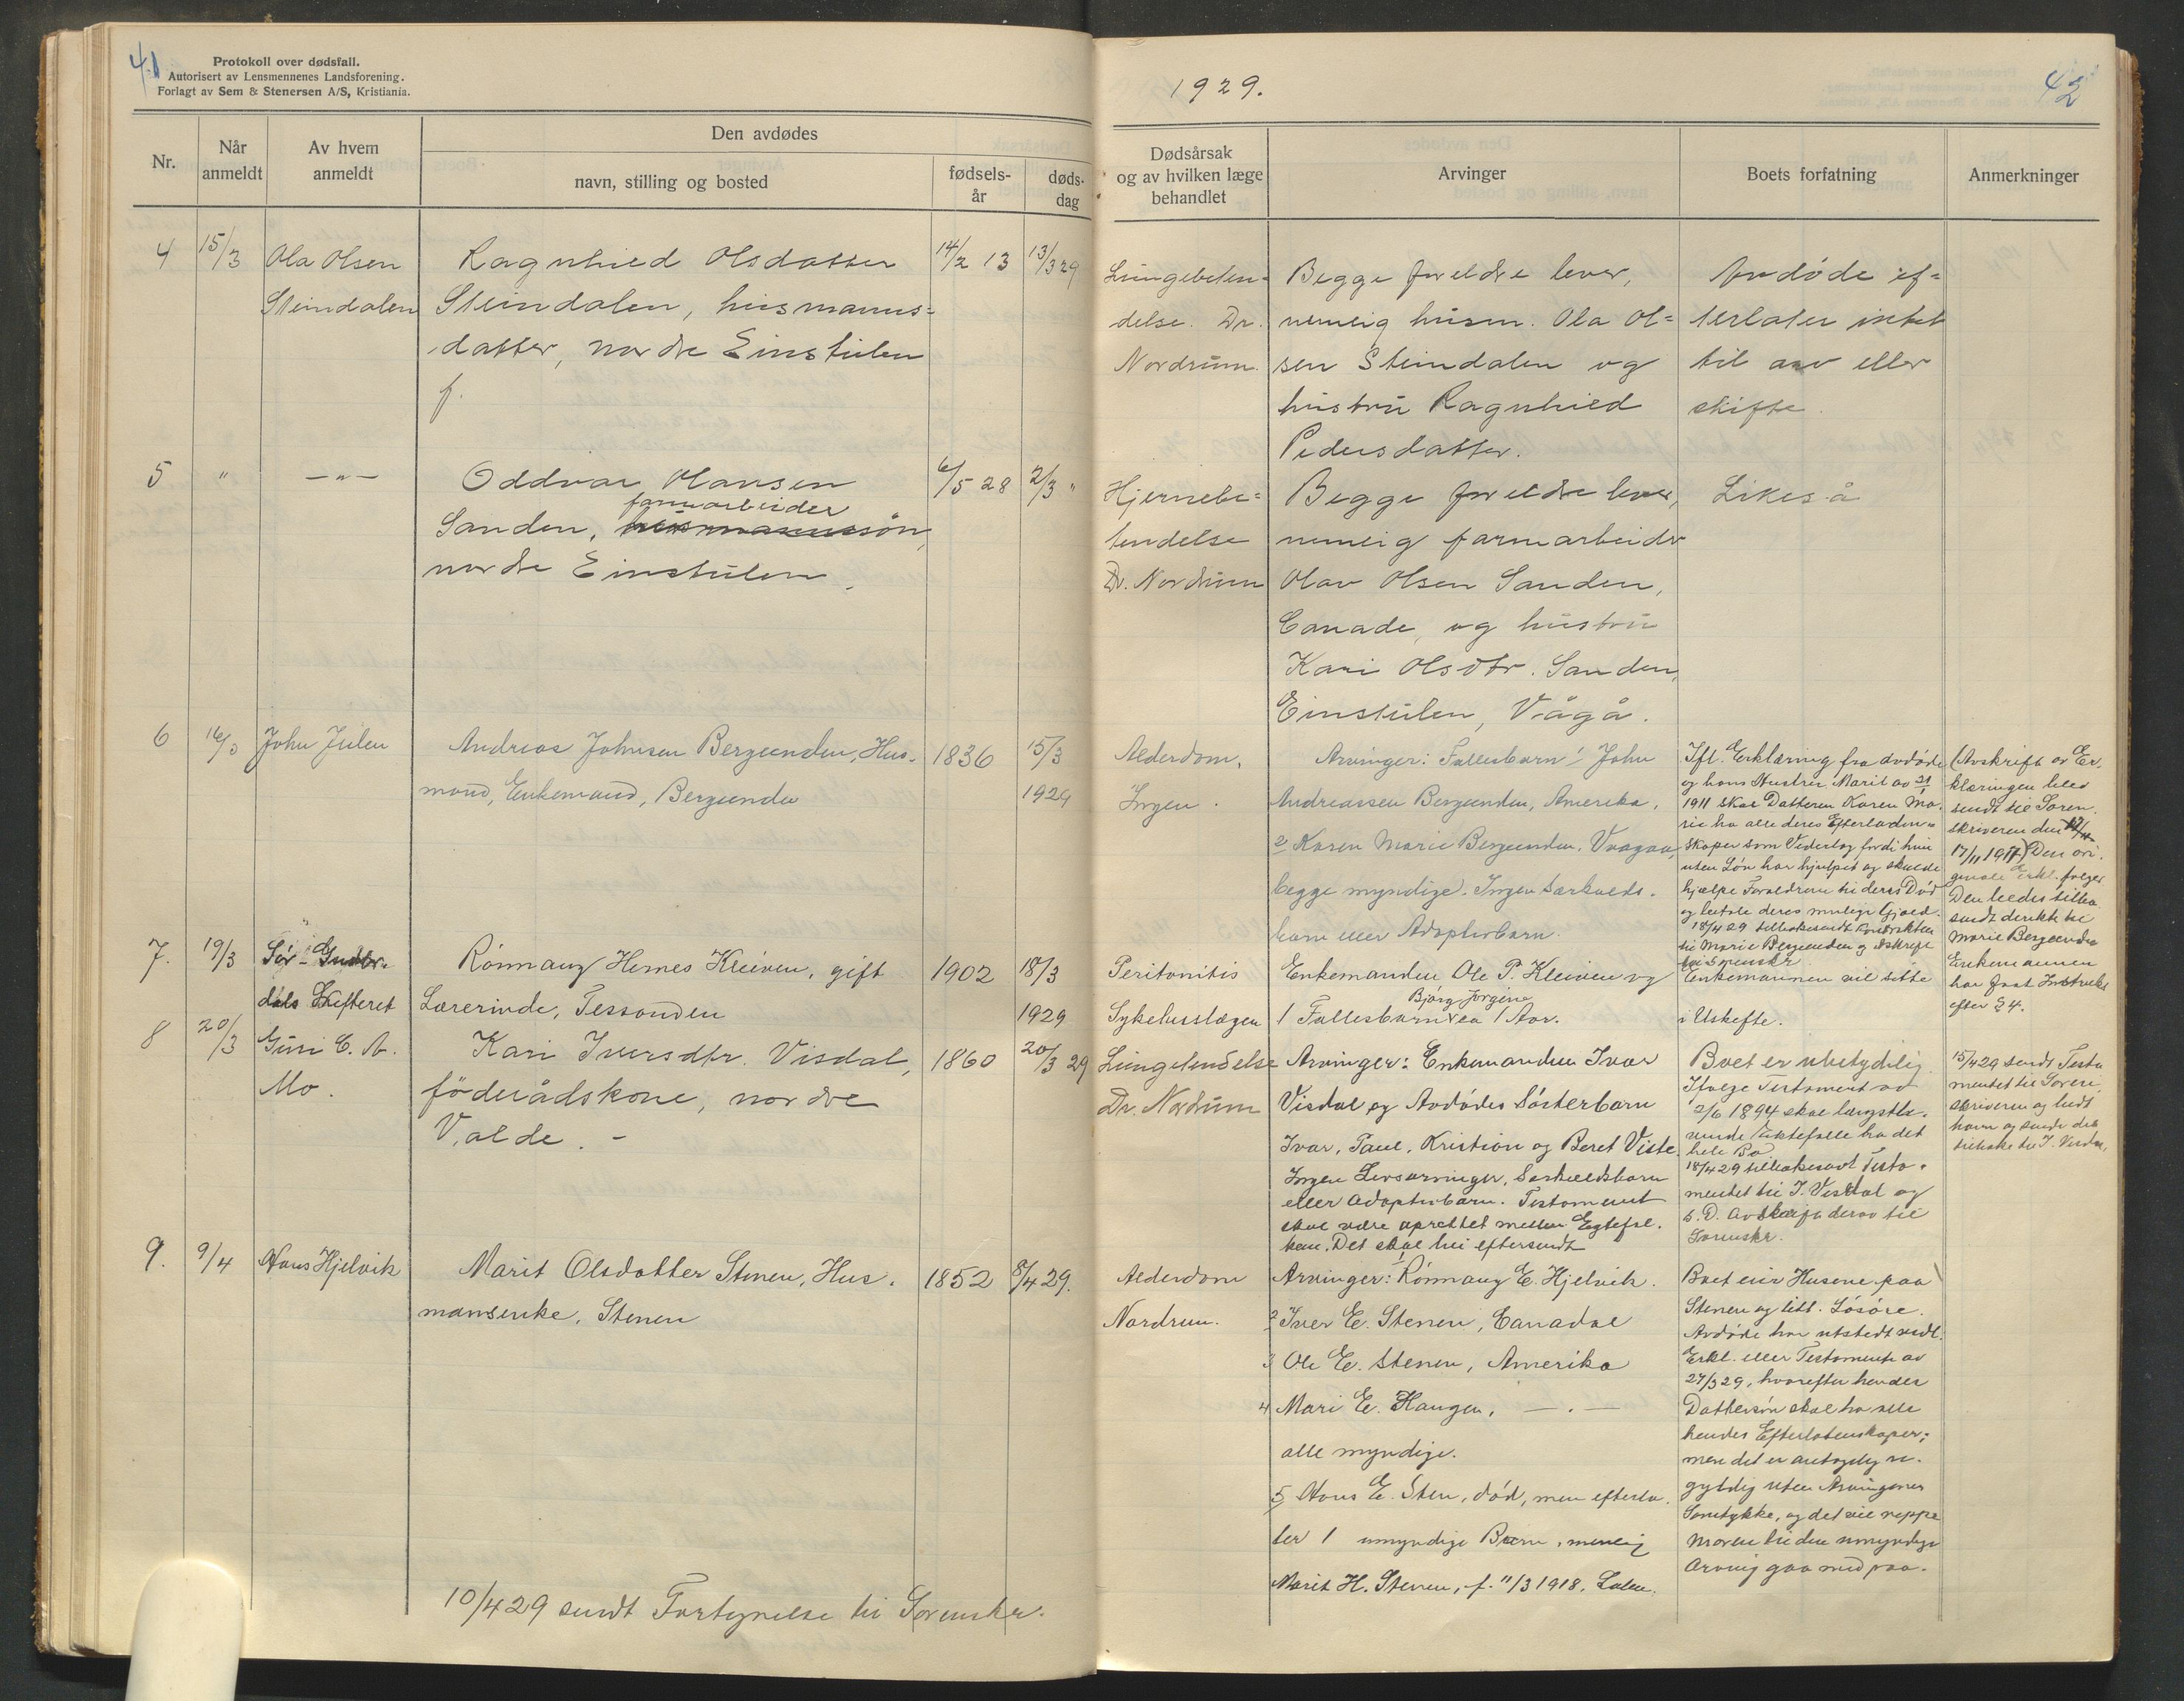 41
Protokoll over dødsfall.
Autorisert av Lensmennenes Landsforening.
Forlagt av Sem & Stenersen A/S, Kristiania.
Nr.
Når anmeldt
Av hvem anmeldt
Den avdødes
navn, stilling og bosted
fødsels-år
døds-dag
4 15/3 Ola Olsen Ragnhild Olsdatter 14/2 13 13/3 29
Steindalen Steindalen, husmanns=
datter, nordre Einstulen
f.
5 " —"— Oddvar Olavsen 6/5 28 2/3 "
farmarbeider
Sanden, husmannssøn,
nordre Einstulen.
6 16/3 John Julen Andreas Johnsen Bergeenden, Hus- 1836 15/3
mand, Enkemand, Bergeenden 1929
7. 19/3 Sør-Gudbr. Rønnaug Hernes Kleiven, gift 1902 18/3
dals Skifteret Lærerinde, Tessanden 1929
8 20/3 Guri C. A. Kari Iversdtr. Visdal, 1860 20/3 29
Mo. föderådskone, nordre
Valde. –
9. 9/4 Hans Hjelvik Marit Olsdatter Stenen, Hus. 1852 8/4 29.
mansenke, Stenen
10/4 29 sendt Fortegnelse til Sorenskr.
1929.
42
Dødsårsak
og av hvilken læge
behandlet
Arvinger
Boets forfatning
Anmerkninger
Lungebeten= Begge foreldre lever, Avdöde ef=
delse. Dr. nemlig husm. Ola Ol= terlater intet
Nordrum. sen Steindalen og til arv eller
hustru Ragnhild skifte.
Pedersdatter.
Hjernebe= Begge foreldre lever, Likeså
tendelse nemlig farmarbeider
Dr. Nordrum Olav Olsen Sanden,
Canade, og hustru
Kari Olsdtr. Sanden,
Einstulen, Vågå.
Alderdom. Arvinger: Fællesbarn: John
Ingen. Andreassen Bergeenden, Amerika.
2 Karen Marie Bergeenden, Vaagaa,
begge myndige. Ingen Særkulds.
barn eller Adoptivbarn.
Ifl. Erklæring fra avdøde
og hans Hustru Marit av
1911 skal Datteren Karen Ma.
rie ha alle deres Efterladen=
skaper som Vederlag fordi hun
uten Løn har hjulpet og skulde
hjælpe Forældrene til deres Død
og betale deres mulige Gjæld.
18/4 29 tilbakesendt Kontrakten
til Marie Bergeenden og Avskrift
til Sorenskr.
(Avskrift av Er.
klæringen blev
sendt til Soren.
skriveren den
17/11 1911) Den ori.
ginale Erkl. følger
Den bedes tilba
sendt direkte til
Marie Bergeenden
Peritonitis Enkemanden Ole P. Kleiven og Enkemannen vil sitte
Bjørg Jorgine
Sykehuslægen 1 Fællesbarn ca 1 Aar. i Uskifte.
Enkemannen
har faat Instruks
efter § 4.
Lungetendelse Arvinger: Enkemanden Ivar
Dr. Nordrum Visdal og Avdødes Søsterbarn
Ivar, Paul, Kristian og Beret Viste.
Ingen Livsarvinger, Særkuldsbarn
eller Adoptivbarn. Testament
skal være oprettet mellem Egtefol.
kene. Det skal bli eftersendt
Boet er ubetydelig
Ifølge Testament av
2/6 1894 skal længstle.
vende Ektefælle ha det
hele Bo
18/4 29 tilbakesendt Testa.
mentet til I. Visdal og
s. D. Avskrift derav til
Sorenskr.
15/4 29 sendt Testa
mentet til Soren
skriveren og bedt
ham og sende det
tilbake til I. Visdal.
Alderdom Arvinger: Rønnaug E. Hjelvik.
Nordrum. 2 Iver E. Stenen, Canada
3 Ole E. Stenen, Amerika
4 Mari E. Haugen, — . —
alle myndige.
5 Hans E. Sten, død, men efterla.
ter 1 umyndige Barn, nemlig
Marit H. Stenen, f. 11/3 1918. Lalm.
Boet eier Husene paa
Stenen og litt Løsøre.
Avdøde har utstedt vedl.
Erkl. eller Testamente av
27/3 29, hvorefter hendes
Dattersøn skal ha alle
hendes Efterlatenskaper;
men det er antagelig u-
gyldig uten Arvingenes
Samtykke, og det vil neppe
Moren til den umyndige
Arving gaa med paa.